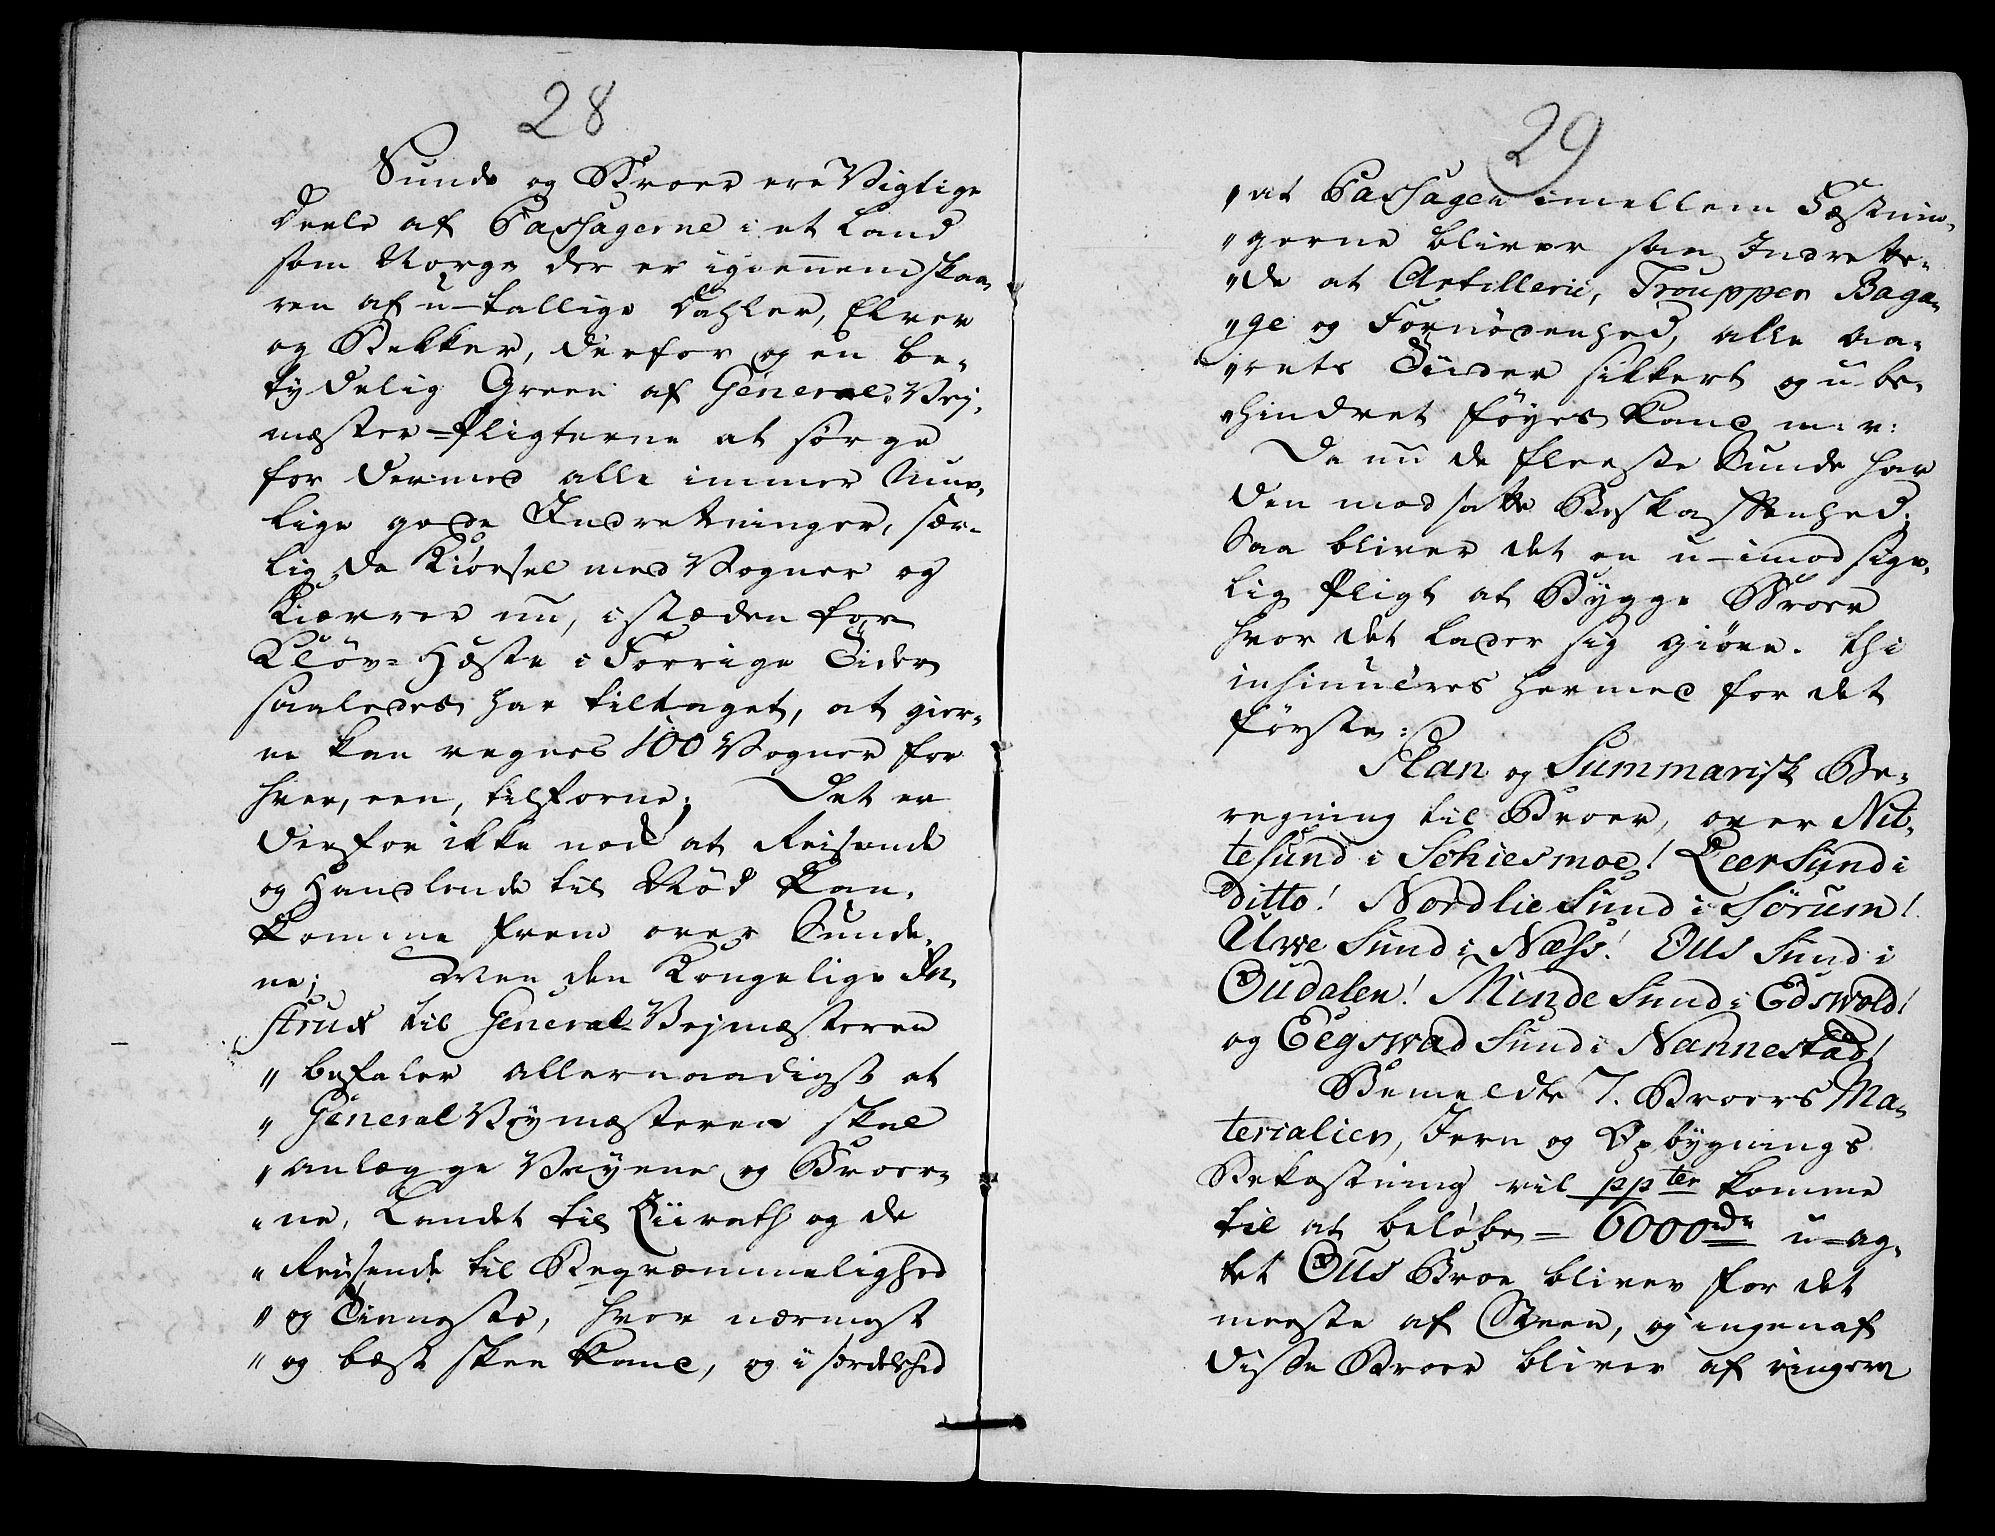 28
Sunde og Broer ere Vigtige
Deele af Passagerne i et Land
som Norge der er igiennemskaa-
ren af u-tallige Dahler, Elver
og Bekker, derfor og en be-
tydelig Green af General-Vej-
mæster-Pligterne at sørge
for dermed alle immer Mue-
lige gode Indretninger, sær-
lig da Kiørsel med Vogner og
Kiærrer nu, i stæden for
Kløv-Hæste i Forrige Tider
saaledes har tiltaget, at gier-
ne kan regnes 100 Vogner for
hver, een, tilforne; Det er
derfor ikke nok at Reisende
og Handlende til Nød kan
komme frem over Sunde-
ne; Men den Kongelige In-
strux til General Vejmæsteren
" befaler allernaadigst at
" General Vejmæsteren skal
" anlægge Veyene og Broer-
" ne, Landet til Ziirath og de
" Reisende til Beqvæmmelighed
" og Tienneste, hvor nærmest
" og bæst skee kand, og i særdelished
29
" at Passagen imellem Fæstnin-
" gerne bliver saa Indrette-
" de at Artillerie, Trouppen Baga-
" ge og Fornødenhed, alle Aa-
" rets Tiider sikkert og u-be-
" hindret føyes kand m: v:
Da nu de fleeste Sunde har
den modsatte Beskaffenhed;
Saa bliver det en u-imodsige-
lig Pligt at Bygge Broer
hvor det lader sig giøre. thi
insinueres hermed for det
første:
Plan og Summarisk Be-
regning til Broer, over Nit-
tesund i Schiesmoe! Leersund i
ditto! Nordlie Sund i Sørum!
Urwe Sund i Næss! Ous Sund i
Oudalen! Minde Sund i Edswold!
og Eegswad Sund i Nannestad!
Bemeldte 7. Broers Ma-
terialier, Jern og Opbygnings
Bekostning vil ppter komme
til at beløbe = 6000 rdr u-ag-
tet Ous Broe bliver for det
meeste af Steen, og ingen af
disse Broer bliver af ringere